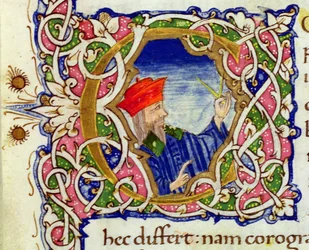 C
hec differt: nam corogra